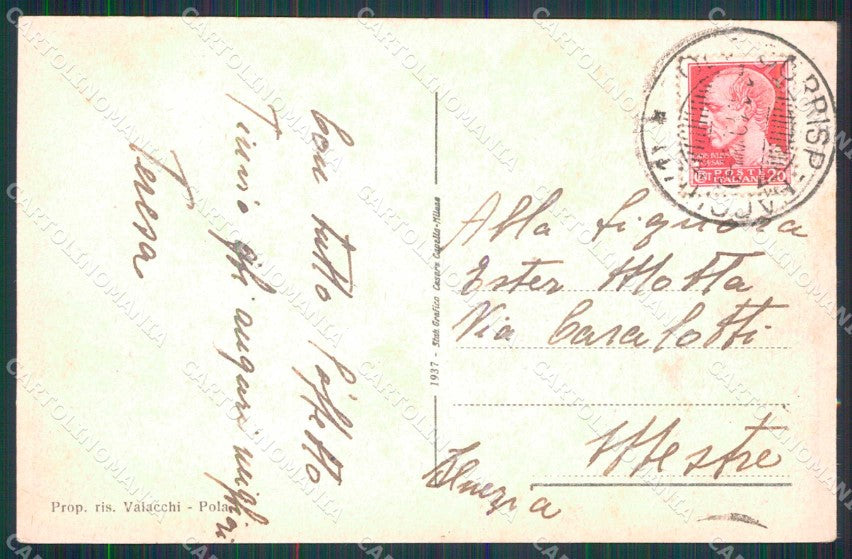 Con tutto l'affetto
T'invio gli auguri migliori
Teresa
Prop. ris. Valacchi - Pola
1937 - Stab. Grafico Cesare Capello-Milano
CORRISP
POSTE
ITALIANE
20
Alla Signora
Ester Motta
Via Casalotti
Mestre
Venezia
CARTOLINOMANIA